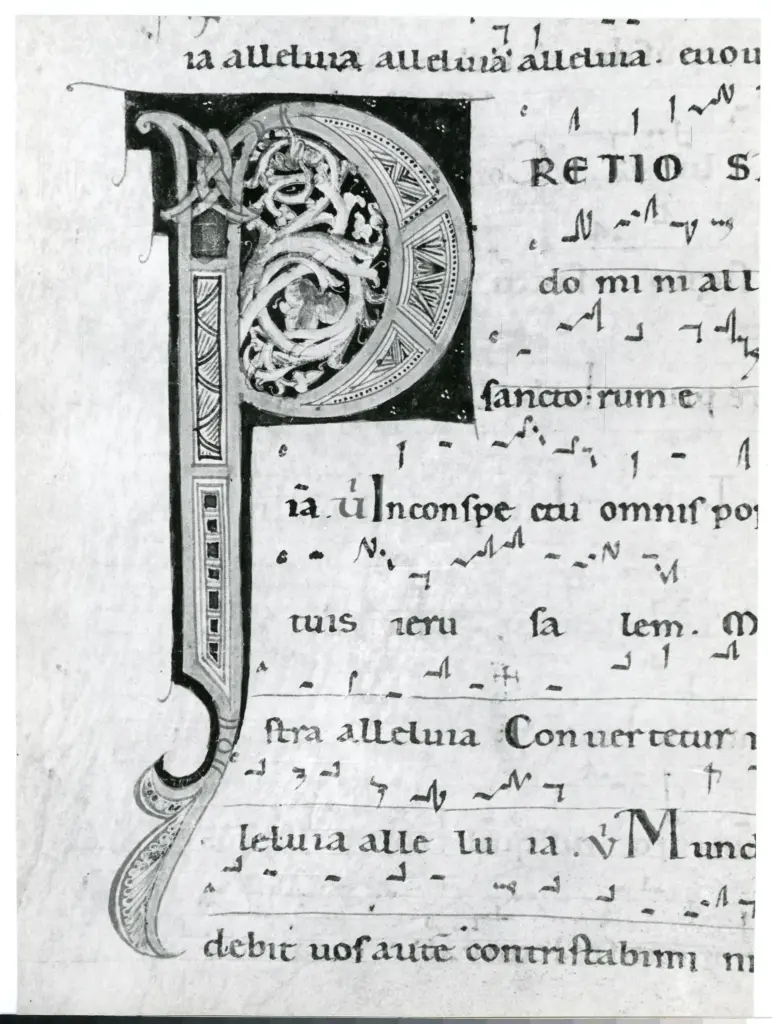 ia alleluia alleluia alleluia. euou
PRETIO S
do mi ni all
sancto rum e
iā ℣ Inconspe ctu omnis pop
tuis ieru sa lem. M
stra alleluia Conuertetur
leluia alle lu ia. ℣ Mund
debit uos autē contristabimi ni